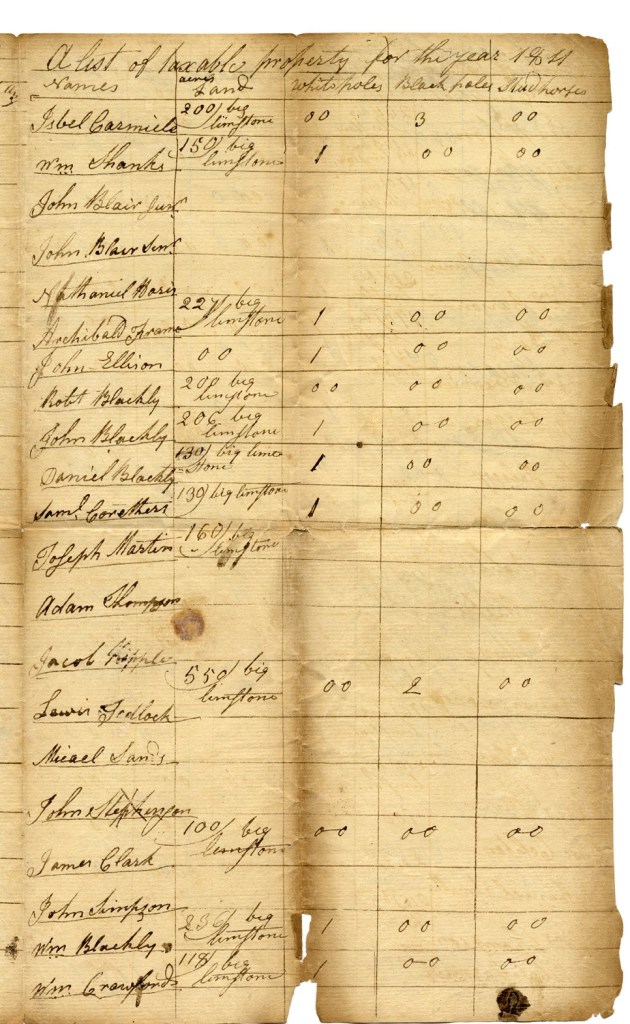 A list of taxable property for the year 1811
Names acres Land Whitepoles Black poles Stud horses
Isbel Carmicle 200 / big limstone 00 3 00
Wm Shanks 150 / big limstone 1 00 00
John Blair Junr
John Blair Senr
Nathaniel
Archibald 227 / big limstone 1 00 00
John Ellison 00 1 00 00
Robt Blackly 200 big limstone 00 00 00
John Blackly 206 big limstone 1 00 00
Daniel Blackly 130 / big lime stone 1 00 00
Saml Corethers 139 / big limstone 1 00 00
Joseph Martin 160 / big limstone
Adam Thompson
Jacob
Lewis Tedlock 550 / big limstone 00 2 00
Micael Sands
John Stephenson
James Clark 100 / big limstone 00 00 00
John Simpson
Wm Blackly 236 big limstone 1 00 00
Wm Crawford 118 / big limstone 1 00 00